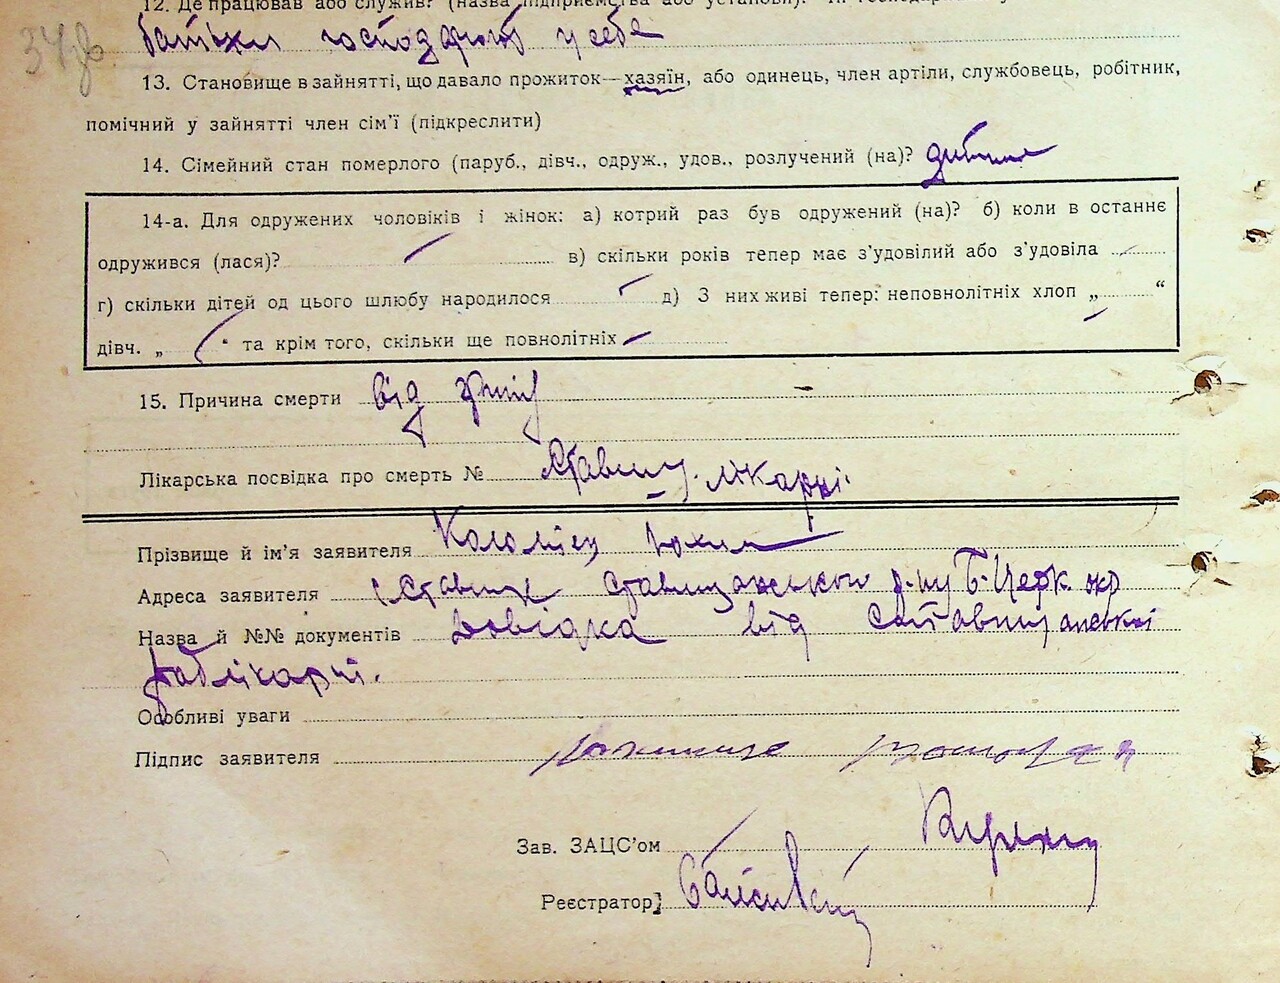 12. Де працював або служив? (назва підприємства або установи).
батьки господарюють у себе
13. Становище в зайнятті, що давало прожиток—хазяїн, або одинець, член артіли, службовець, робітник,
помічний у зайнятті член сім'ї (підкреслити)
14. Сімейний стан померлого (паруб., дівч., одруж., удов., розлучений (на)? дитина
14-а. Для одружених чоловіків і жінок: а) котрий раз був одружений (на)? б) коли в останнє
одружився (лася)? в) скільки років тепер має з'удовілий або з'удовіла
г) скільки дітей од цього шлюбу народилося д) З них живі тепер: неповнолітніх хлоп „ “
дівч. „ “ та крім того, скільки ще повнолітніх
15. Причина смерти від
Лікарська посвідка про смерть № Ставищ. лікарні.
Прізвище й ім'я заявителя Коломієц Юхим
Адреса заявителя с Ставище Ставищанського р-ну Б-Церк. окр
Назва й №№ документів Довідка від Ставищанської
райлікарні.
Особливі уваги
Підпис заявителя
Зав. ЗАЦС'ом
Реєстратор